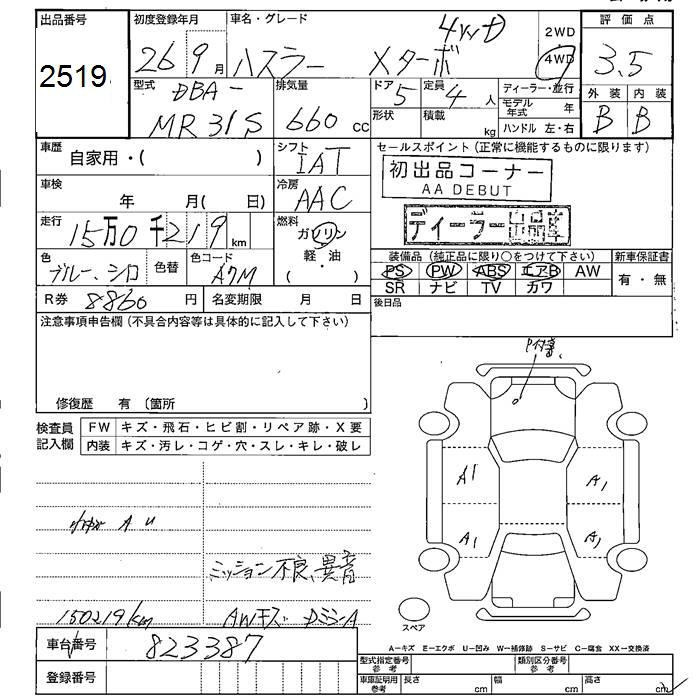 出品番号 初度登録年月 車名・グレード 4WD 2WD 評価点
2519 26 9月 ハスラー Xターボ 4WD 3.5
型式 DBA- 排気量 ドア 5 定員 4人 ディーラー・並行 外装 内装
MR31S 660 cc 形状 積載 kg モデル年式 年 B B
ハンドル 左・右
車歴 自家用・( ) シフト IAT セールスポイント (正常に機能するものに限ります)
初出品コーナー
AA DEBUT
車検 年 月( 日) 冷房 AAC
走行 15万0千219 km 燃料 ガソリン ディーラー出品車
軽・油
( )
色 ブルー、シロ 色替 色コード A7M 装備品 (純正品に限り○をつけて下さい) 新車保証書
PS PW ABS エアB AW 有・無
SR ナビ TV カワ
R券 8860 円 名変期限 月 日 後日品
注意事項申告欄 (不具合内容等は具体的に記入して下さい)
修復歴 有 (箇所 )
検査員記入欄 FW キズ・飛石・ヒビ割・リペア跡・X要
内装 キズ・汚レ・コゲ・穴・スレ・キレ・破レ
A1 A1
A1 A1
A U
ミッション不良、異音
150219km AWキズ DミラーA
スペア
車台番号 823387
A-キズ E-エクボ U-凹み W-補修跡 S-サビ C-腐食 XX-交換済
登録番号 型式指定番号 参考 類別区分番号 参考
車庫証明用 参考 長さ cm 幅 cm 高さ cm